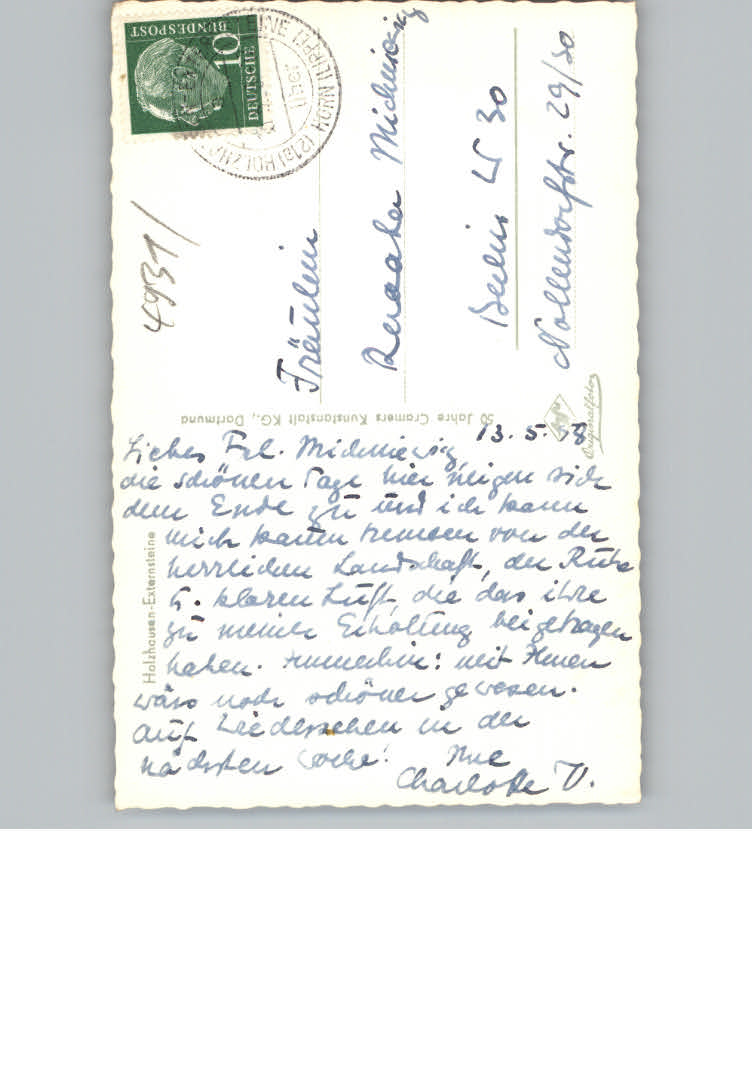 13. 5. 58
Liebes Frl. Michniewig,
die schönen Tage hier neigen sich
dem Ende zu und ich kann
mich kaum trennen von der
herrlichen Landschaft, der Ruhe
u. klaren Luft, die das ihre
zu meiner Erholung beigetragen
haben. Immerhin: mit Ihnen
wärs noch schöner gewesen.
Auf Wiedersehen in der
nächsten Woche! Ihre
Charlotte V.
Holzhausen-Externsteine
50 Jahre Cramers Kunstanstalt KG., Dortmund
Originalfoto
4931/
Fräulein
Berlin W 30
Nollendorfstr. 29/30
DEUTSCHE
BUNDESPOST
10
(21a) HOLZHAUSEN
HORN (LIPPE)